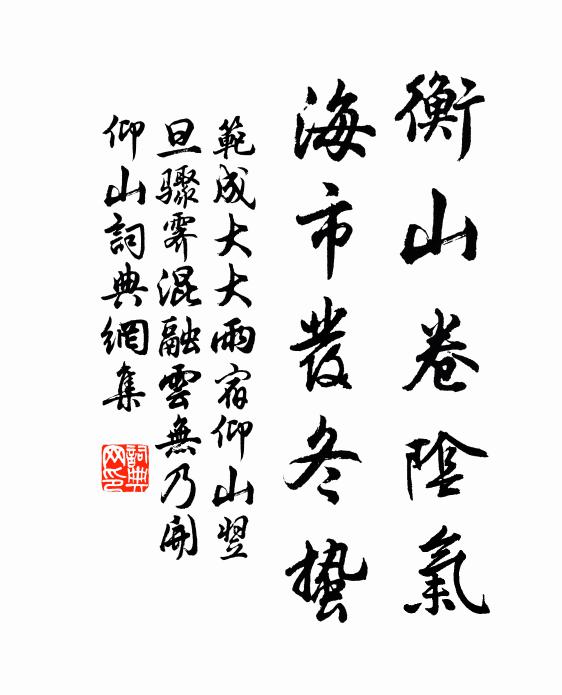 衡山卷陰氣
海市發冬蟄
範成大大雨宿仰山翌
旦驟霽混融雲無乃開
仰山詞典網集
詞典
网印